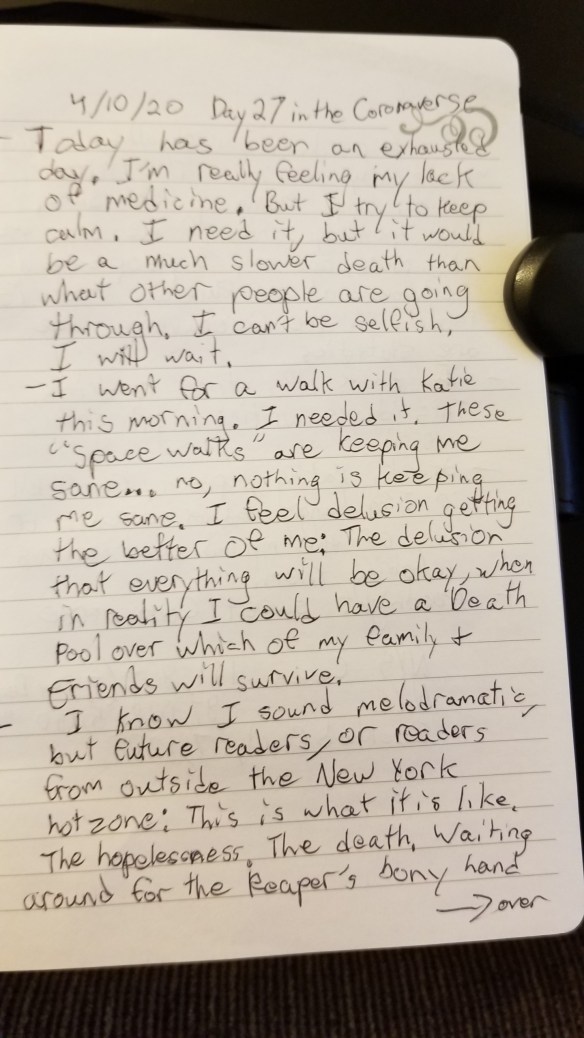 4/10/20 Day 27 in the Coronaverse
- Today has been an exhausted
day. I'm really feeling my lack
of medicine. But I try to keep
calm. I need it, but it would
be a much slower death than
what other people are going
through. I can't be selfish.
I will wait.
- I went for a walk with Katie
this morning. I needed it. These
"Space walks" are keeping me
sane... no, nothing is keeping
me sane. I feel delusion getting
the better of me: The delusion
that everything will be okay, when
in reality I could have a Death
Pool over which of my family +
friends will survive.
- I know I sound melodramatic,
but future readers, or readers
from outside the New York
hot zone: This is what it is like.
The hopelessness. The death. Waiting
around for the Reaper's bony hand
→ over